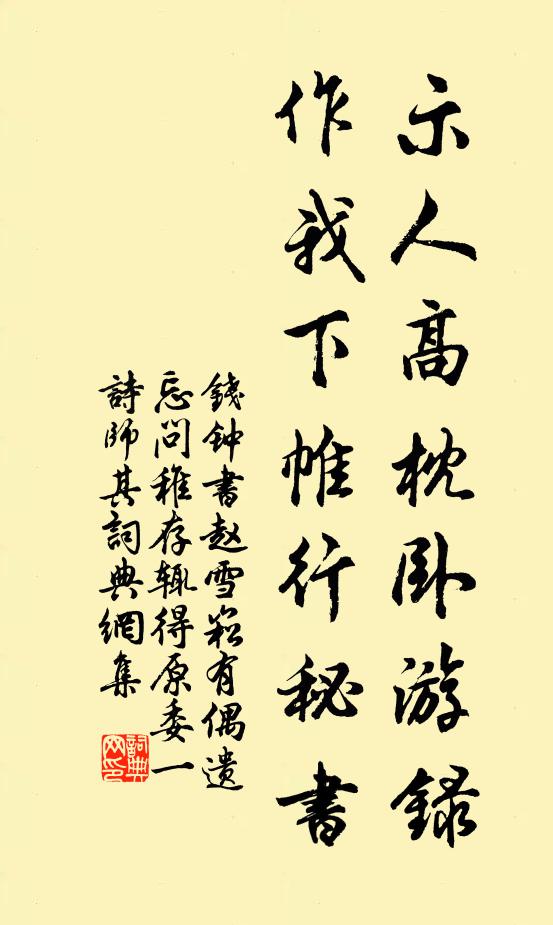 示人高枕卧游録
作我下帷行秘書
錢钟書赵雪崧有偶遺
忘问稚存辄得原委一
詩師其詞典網集
詞典網印